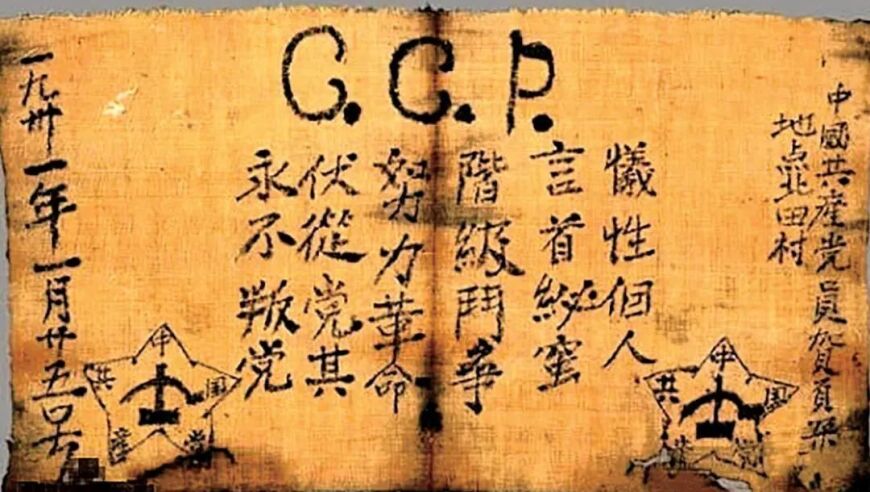 C.C.P.
中國共產党員賀頁朵
地点北田村
犠性個人
言首秘蜜
階級鬥爭
努力革命
伏從党其
永不叛党
一九卅一年一月廿五
中国共党
中国共產党